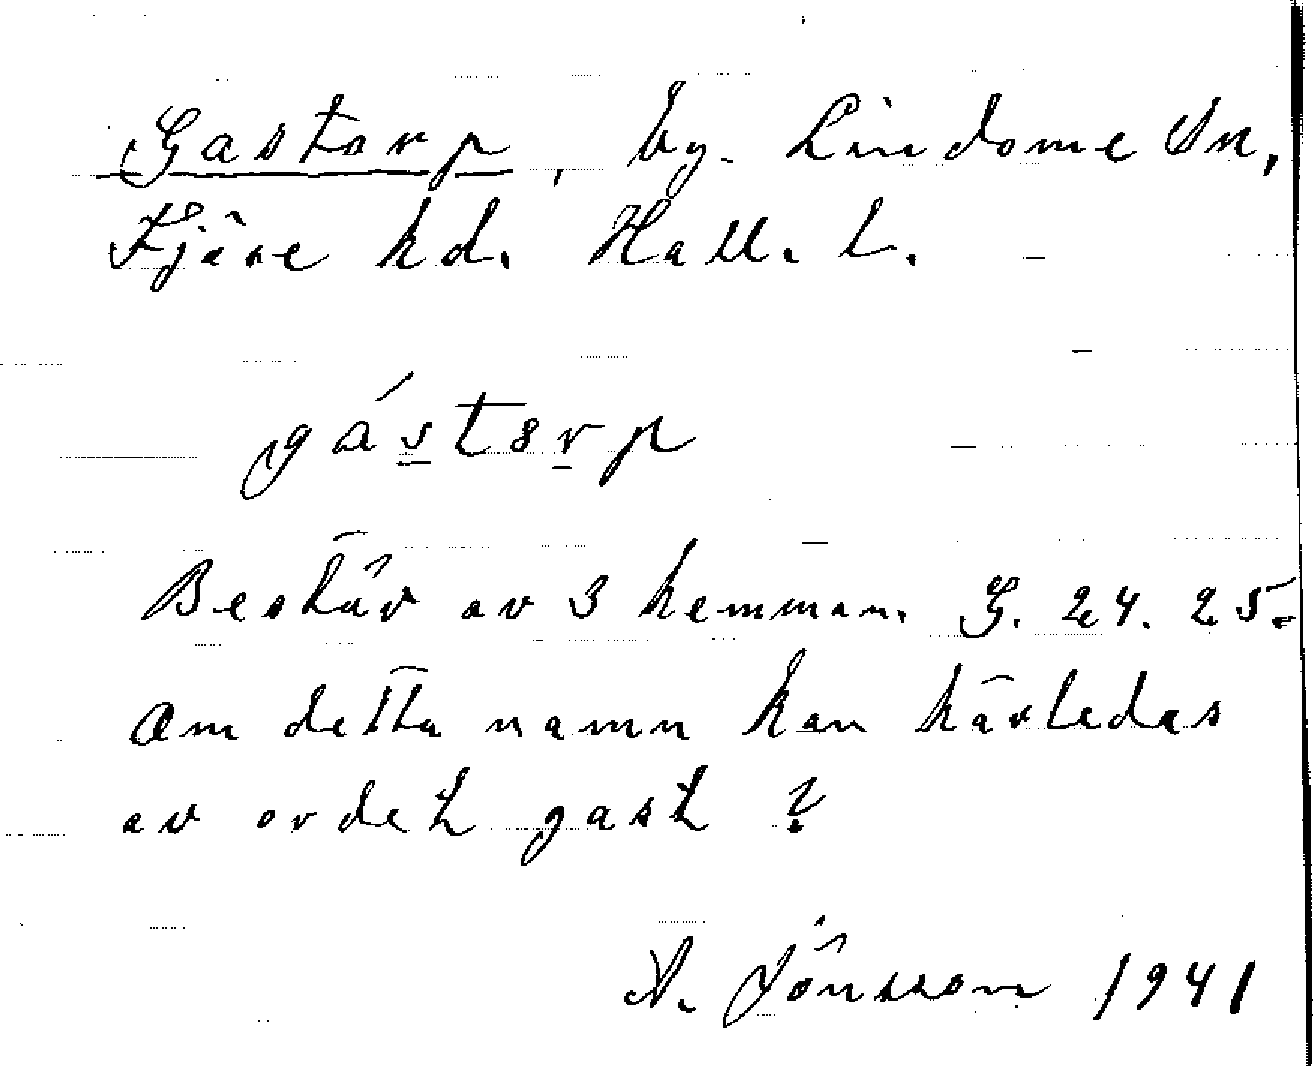 Gastorp, by. Lindome Sn,
Fjäre hd. Hall. L.
gástorp
Består av 3 hemman. G. 24. 25.
Om detta namn kan härledas
av ordet gast ?
A. Jönsson 1941